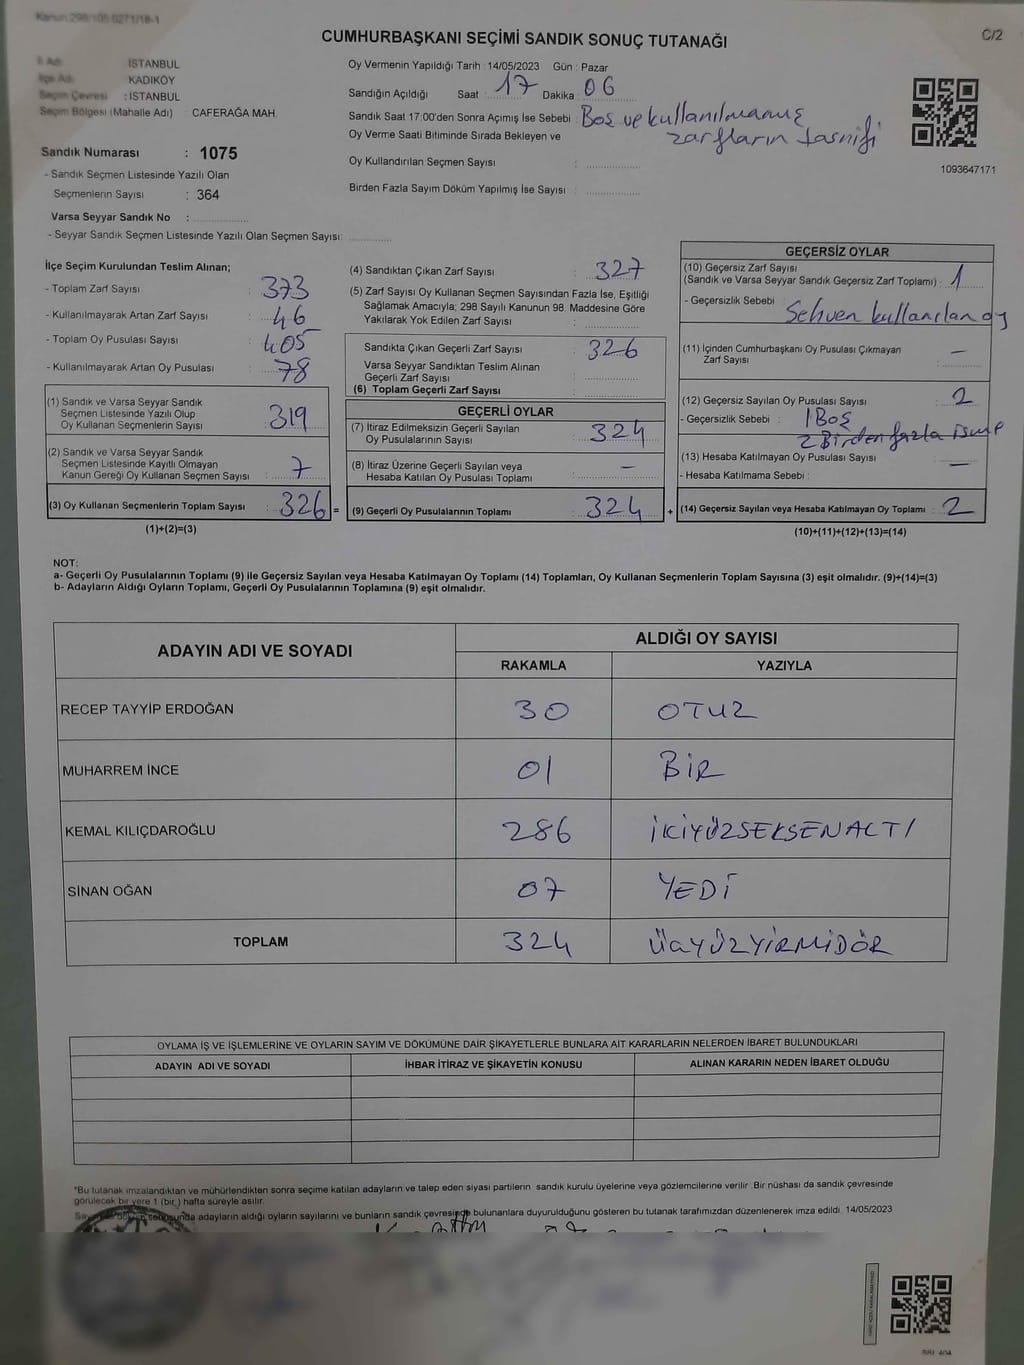 Kanun:298/105.0271/18-1
C/2
CUMHURBAŞKANI SEÇİMİ SANDIK SONUÇ TUTANAĞI
İl Adı : İSTANBUL
İlçe Adı : KADIKÖY
Seçim Çevresi : İSTANBUL
Seçim Bölgesi (Mahalle Adı) : CAFERAĞA MAH.
Sandık Numarası : 1075
- Sandık Seçmen Listesinde Yazılı Olan
Seçmenlerin Sayısı : 364
Varsa Seyyar Sandık No :
- Seyyar Sandık Seçmen Listesinde Yazılı Olan Seçmen Sayısı:
Oy Vermenin Yapıldığı Tarih : 14/05/2023 Gün : Pazar
Sandığın Açıldığı Saat : 17 Dakika : 06
Sandık Saat 17:00'den Sonra Açımış İse Sebebi : Boş ve kullanılmamış
Oy Verme Saati Bitiminde Sırada Bekleyen ve zarfların tasnifi
Oy Kullandırılan Seçmen Sayısı :
Birden Fazla Sayım Döküm Yapılmış İse Sayısı :
1093647171
İlçe Seçim Kurulundan Teslim Alınan;
- Toplam Zarf Sayısı : 373
- Kullanılmayarak Artan Zarf Sayısı : 46
- Toplam Oy Pusulası Sayısı : 405
- Kullanılmayarak Artan Oy Pusulası : 78
(1) Sandık ve Varsa Seyyar Sandık
Seçmen Listesinde Yazılı Olup
Oy Kullanan Seçmenlerin Sayısı : 319
(2) Sandık ve Varsa Seyyar Sandık
Seçmen Listesinde Kayıtlı Olmayan
Kanun Gereği Oy Kullanan Seçmen Sayısı : 7
(3) Oy Kullanan Seçmenlerin Toplam Sayısı : 326 =
(1)+(2)=(3)
(4) Sandıktan Çıkan Zarf Sayısı : 327
(5) Zarf Sayısı Oy Kullanan Seçmen Sayısından Fazla İse, Eşitliği
Sağlamak Amacıyla; 298 Sayılı Kanunun 98. Maddesine Göre
Yakılarak Yok Edilen Zarf Sayısı :
Sandıkta Çıkan Geçerli Zarf Sayısı : 326
Varsa Seyyar Sandıktan Teslim Alınan
Geçerli Zarf Sayısı :
(6) Toplam Geçerli Zarf Sayısı
GEÇERLİ OYLAR
(7) İtiraz Edilmeksizin Geçerli Sayılan
Oy Pusulalarının Sayısı : 324
(8) İtiraz Üzerine Geçerli Sayılan veya
Hesaba Katılan Oy Pusulası Toplamı : —
(9) Geçerli Oy Pusulalarının Toplamı : 324 +
GEÇERSİZ OYLAR
(10) Geçersiz Zarf Sayısı
(Sandık ve Varsa Seyyar Sandık Geçersiz Zarf Toplamı) : 1
- Geçersizlik Sebebi : Sehven kullanılan oy
(11) İçinden Cumhurbaşkanı Oy Pusulası Çıkmayan
Zarf Sayısı : —
(12) Geçersiz Sayılan Oy Pusulası Sayısı : 2
- Geçersizlik Sebebi : 1 Boş
2 Birden fazla isme
(13) Hesaba Katılmayan Oy Pusulası Sayısı : —
- Hesaba Katılmama Sebebi :
(14) Geçersiz Sayılan veya Hesaba Katılmayan Oy Toplamı : 2
(10)+(11)+(12)+(13)=(14)
NOT:
a- Geçerli Oy Pusulalarının Toplamı (9) ile Geçersiz Sayılan veya Hesaba Katılmayan Oy Toplamı (14) Toplamları, Oy Kullanan Seçmenlerin Toplam Sayısına (3) eşit olmalıdır. (9)+(14)=(3)
b- Adayların Aldığı Oyların Toplamı, Geçerli Oy Pusulalarının Toplamına (9) eşit olmalıdır.
ADAYIN ADI VE SOYADI ALDIĞI OY SAYISI
RAKAMLA YAZIYLA
RECEP TAYYİP ERDOĞAN 30 OTUZ
MUHARREM İNCE 01 BİR
KEMAL KILIÇDAROĞLU 286 İKİYÜZSEKSENALTI
SİNAN OĞAN 07 YEDİ
TOPLAM 324 ÜÇYÜZYİRMİDÖR
OYLAMA İŞ VE İŞLEMLERİNE VE OYLARIN SAYIM VE DÖKÜMÜNE DAİR ŞİKAYETLERLE BUNLARA AİT KARARLARIN NELERDEN İBARET BULUNDUKLARI
ADAYIN ADI VE SOYADI İHBAR İTİRAZ VE ŞİKAYETİN KONUSU ALINAN KARARIN NEDEN İBARET OLDUĞU
*Bu tutanak imzalandıktan ve mühürlendikten sonra seçime katılan adayların ve talep eden siyasi partilerin sandık kurulu üyelerine veya gözlemcilerine verilir. Bir nüshası da sandık çevresinde
görülecek bir yere 1 (bir) hafta süreyle asılır.
adayların aldığı oyların sayılarını ve bunların sandık çevresinde bulunanlara duyurulduğunu gösteren bu tutanak tarafımızdan düzenlenerek imza edildi. 14/05/2023